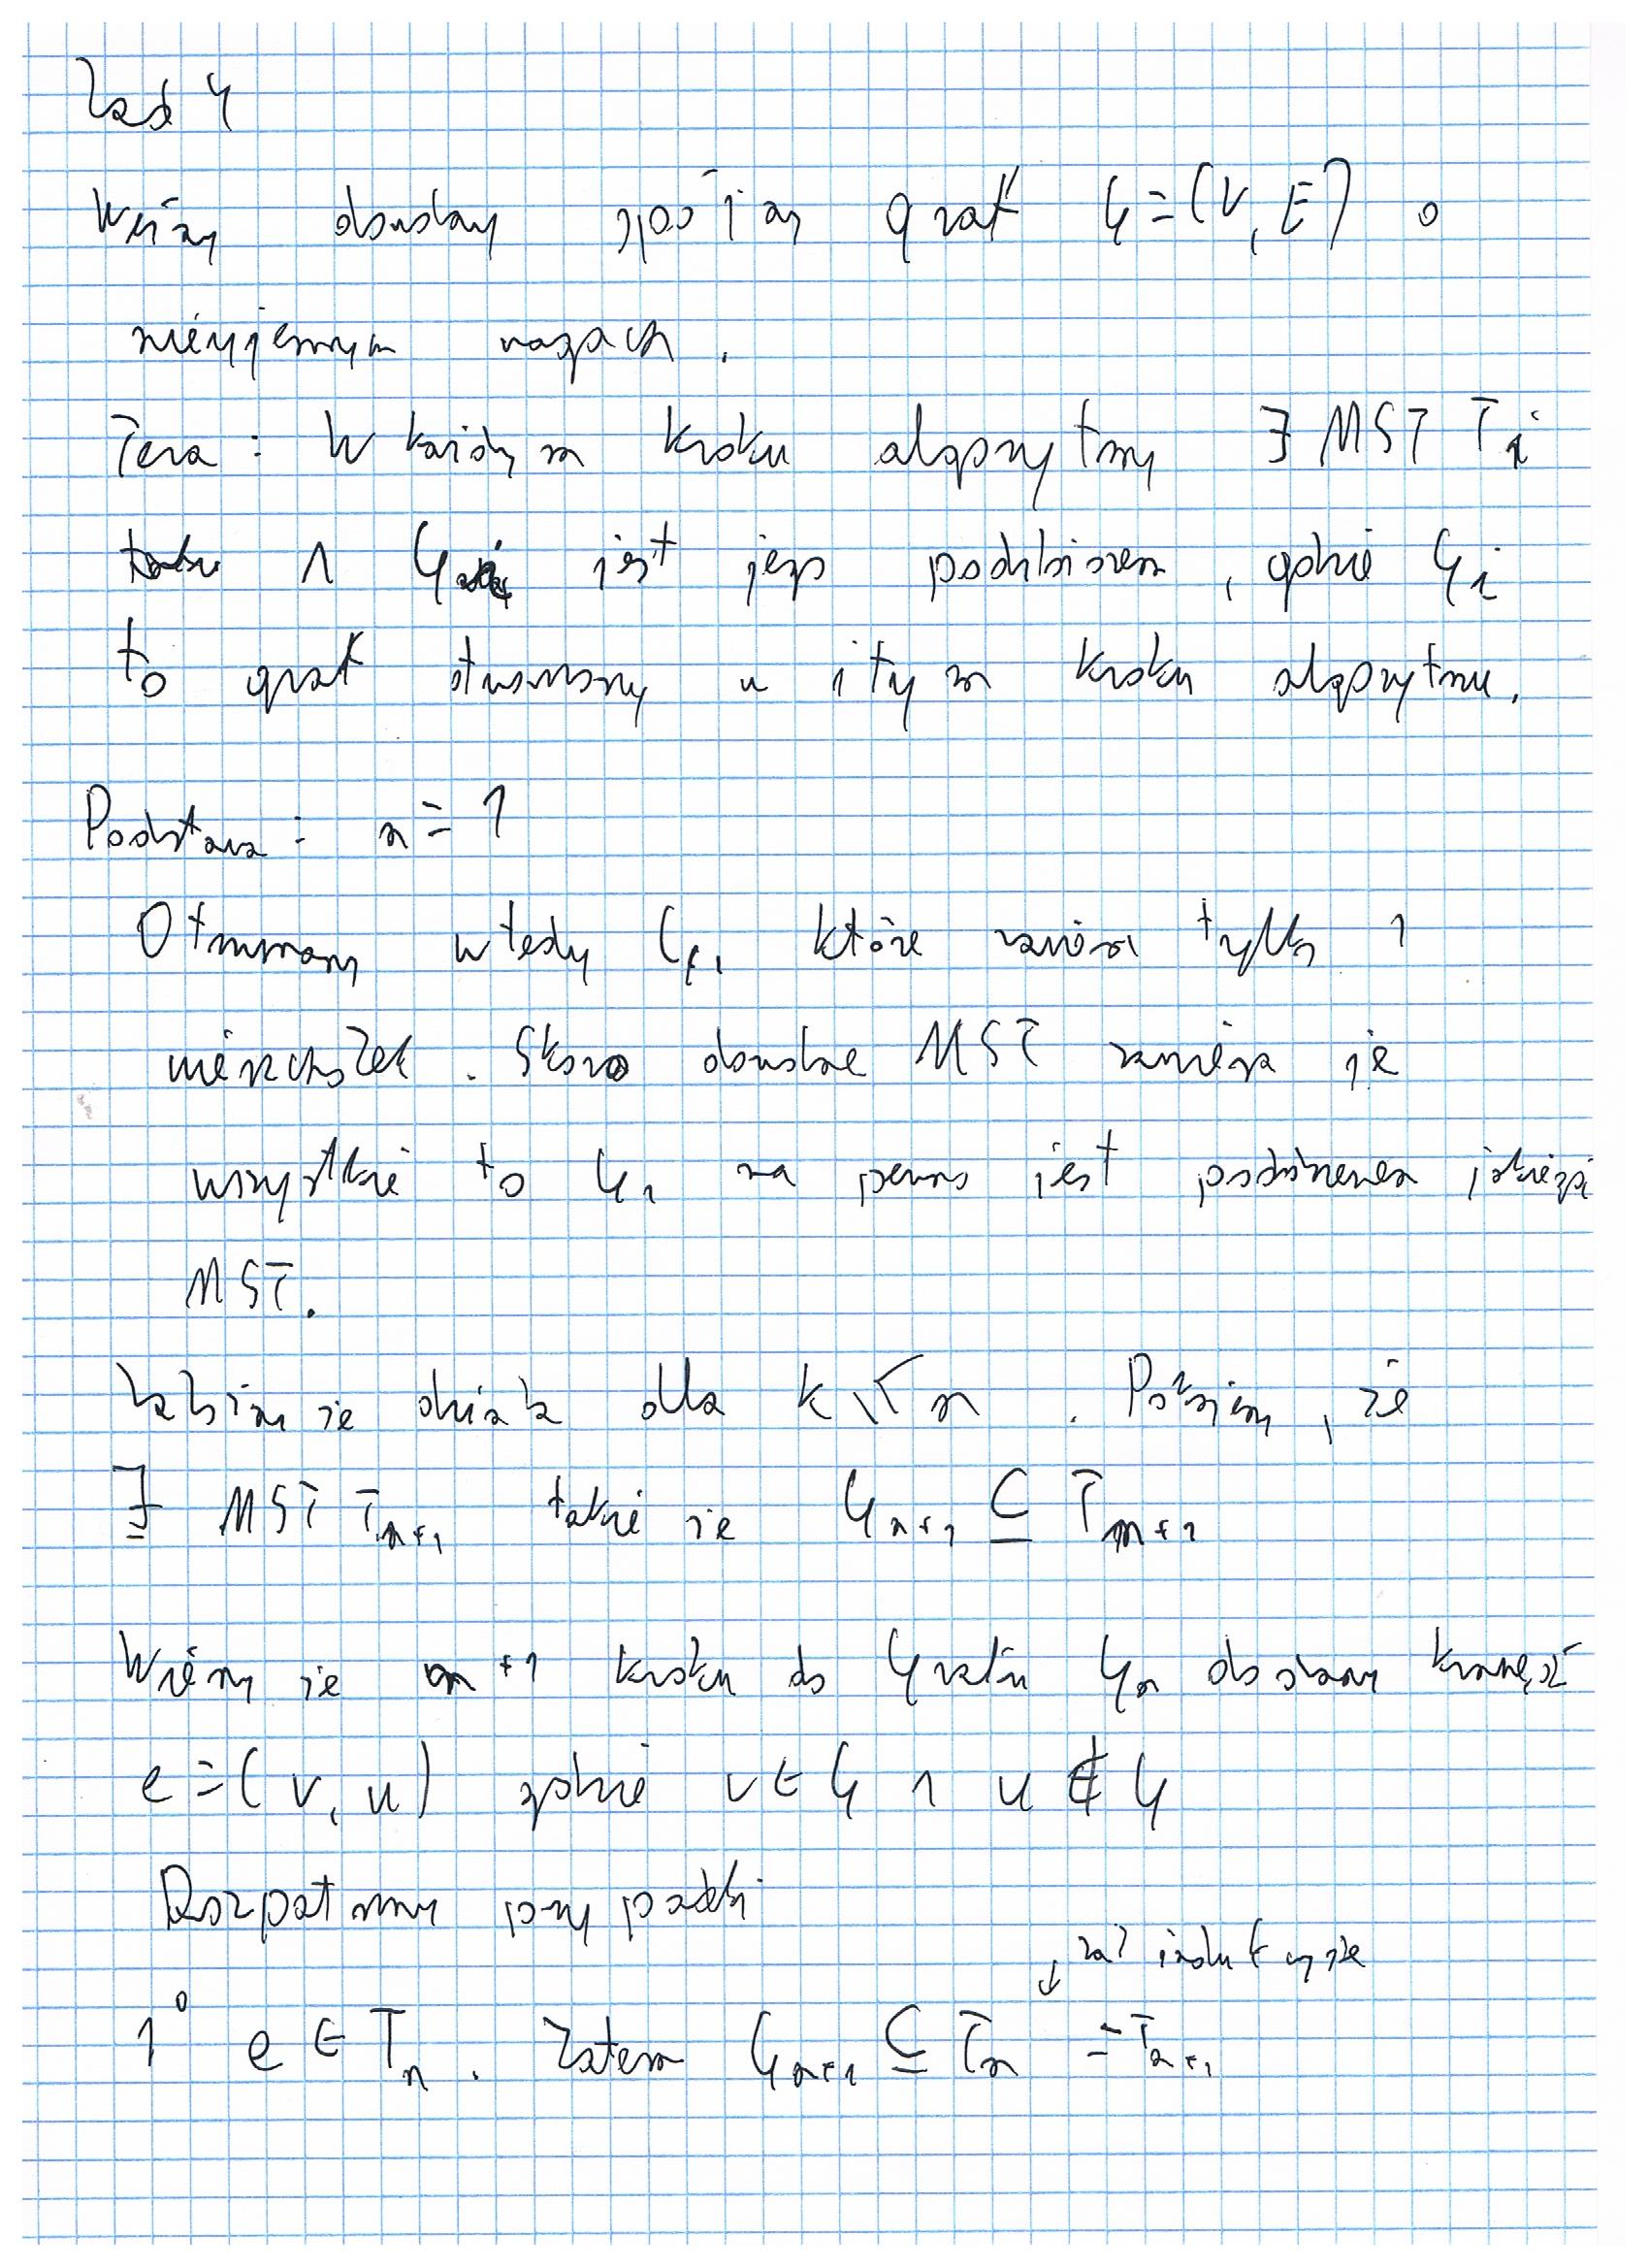 Zad 4
Weźmy dowolny spójny graf G = (V, E) o
nieujemnych wagach.
Teza: W każdym kroku algorytmu ∃ MST T_i
takie ∧ G_i jest jego podzbiorem, gdzie G_i
to graf otrzymany w i tym kroku algorytmu.
Podstawa: n = 1
Otrzymamy wtedy G_1 które zawiera tylko 1
wierzchołek. Skoro dowolne MST zawiera je
wszystkie to G_1 na pewno jest podzbiorem jakiegoś
MST.
Załóżmy że działa dla k ≤ n. Pokażemy, że
∃ MST T_{n+1} takie że G_{n+1} ⊆ T_{n+1}
Wiemy że w n+1 kroku do Grafu G_n dodamy krawędź
e = (v, u) gdzie v ∈ G ∧ u ∉ G
Rozpatrzmy przypadki
zał indukcyjne
1° e ∈ T_n. Zatem G_{n+1} ⊆ T_n = T_{n+1}